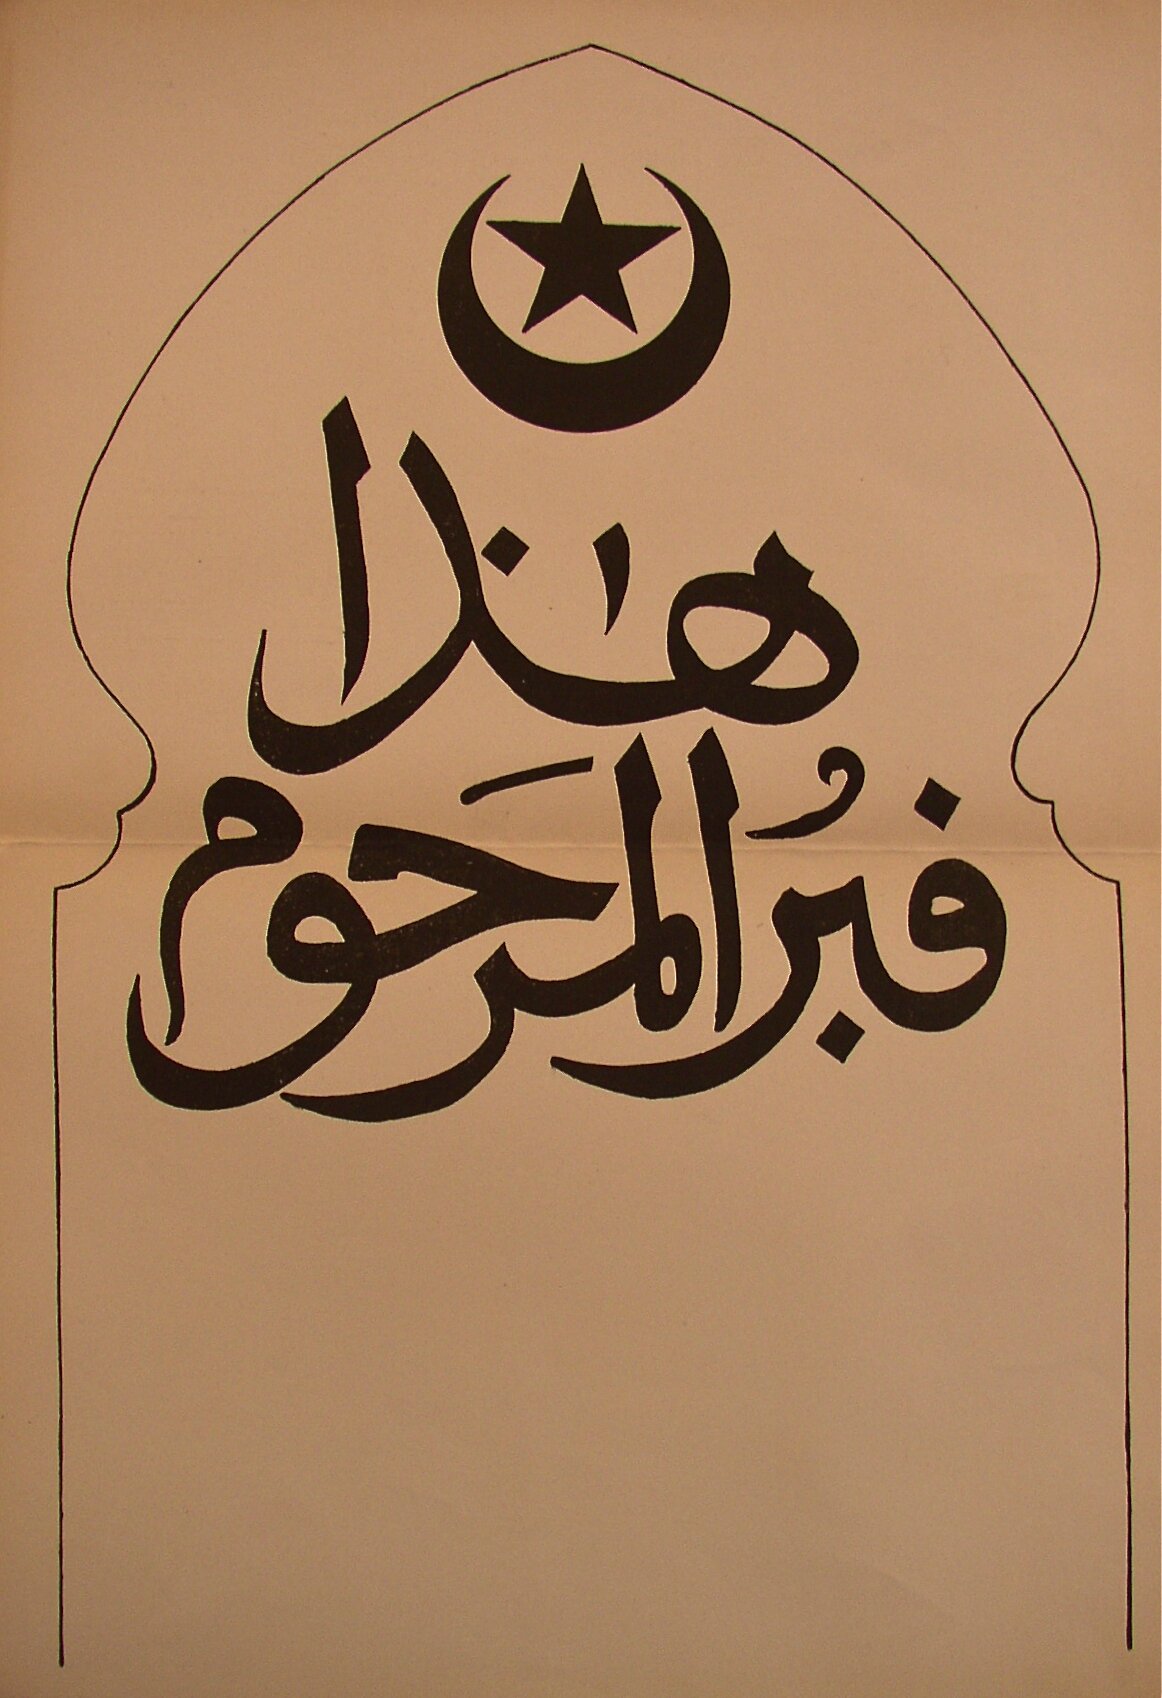 هٰذا
قبرُ المَرحوم